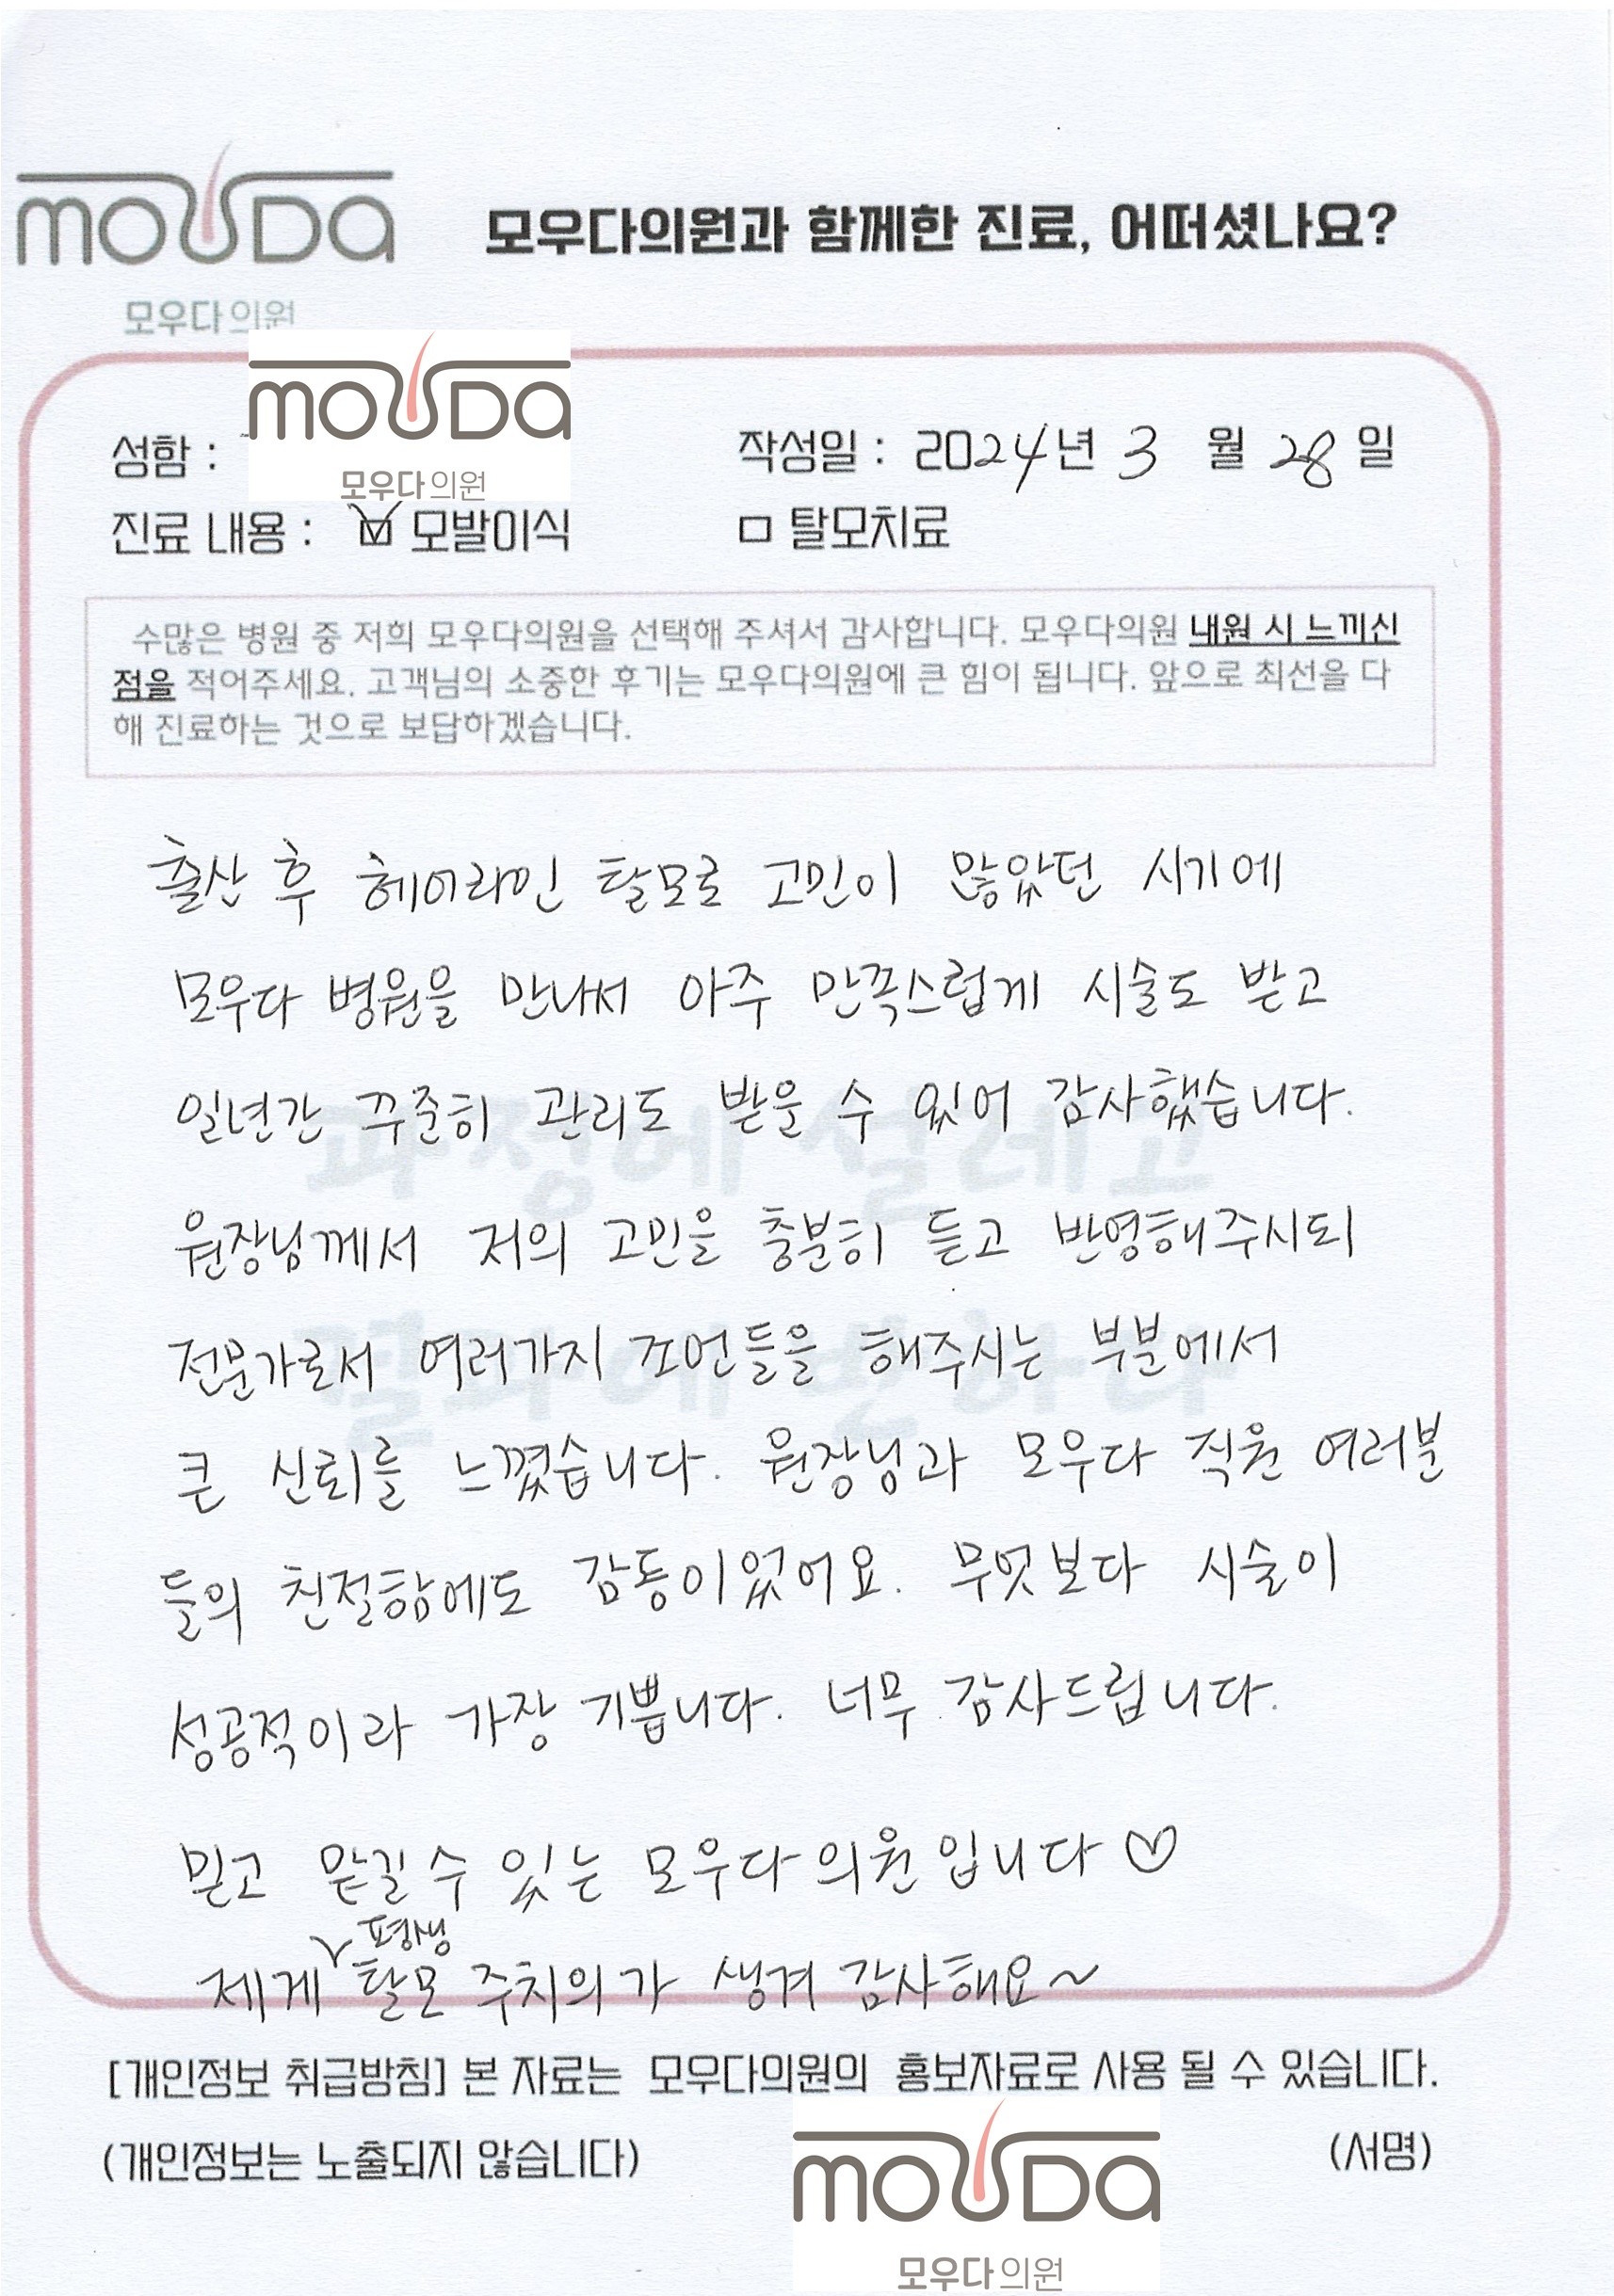 mouda
모우다의원
모우다의원과 함께한 진료, 어떠셨나요?
mouda
모우다의원
성함 :
작성일 : 2024년 3 월 28 일
진료 내용 : ☑ 모발이식 □ 탈모치료
수많은 병원 중 저희 모우다의원을 선택해 주셔서 감사합니다. 모우다의원 내원 시 느끼신
점을 적어주세요. 고객님의 소중한 후기는 모우다의원에 큰 힘이 됩니다. 앞으로 최선을 다
해 진료하는 것으로 보답하겠습니다.
출산 후 헤어라인 탈모로 고민이 많았던 시기에
모우다 병원을 만나서 아주 만족스럽게 시술도 받고
일년간 꾸준히 관리도 받을 수 있어 감사했습니다.
과정에 설레고
원장님께서 저의 고민을 충분히 듣고 반영해주시되
전문가로서 여러가지 조언들을 해주시는 부분에서
결과에 반하다
큰 신뢰를 느꼈습니다. 원장님과 모우다 직원 여러분
들의 친절함에도 감동이었어요. 무엇보다 시술이
성공적이라 가장 기쁩니다. 너무 감사드립니다.
믿고 맡길 수 있는 모우다의원입니다♡
평생
제게 탈모 주치의가 생겨 감사해요~
[개인정보 취급방침] 본 자료는 모우다의원의 홍보자료로 사용 될 수 있습니다.
(개인정보는 노출되지 않습니다)
(서명)
mouda
모우다의원